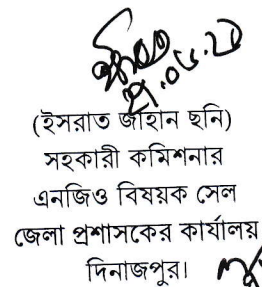 (ইসরাত জাহান ছনি)
সহকারী কমিশনার
এনজিও বিষয়ক সেল
জেলা প্রশাসকের কার্যালয়
দিনাজপুর।